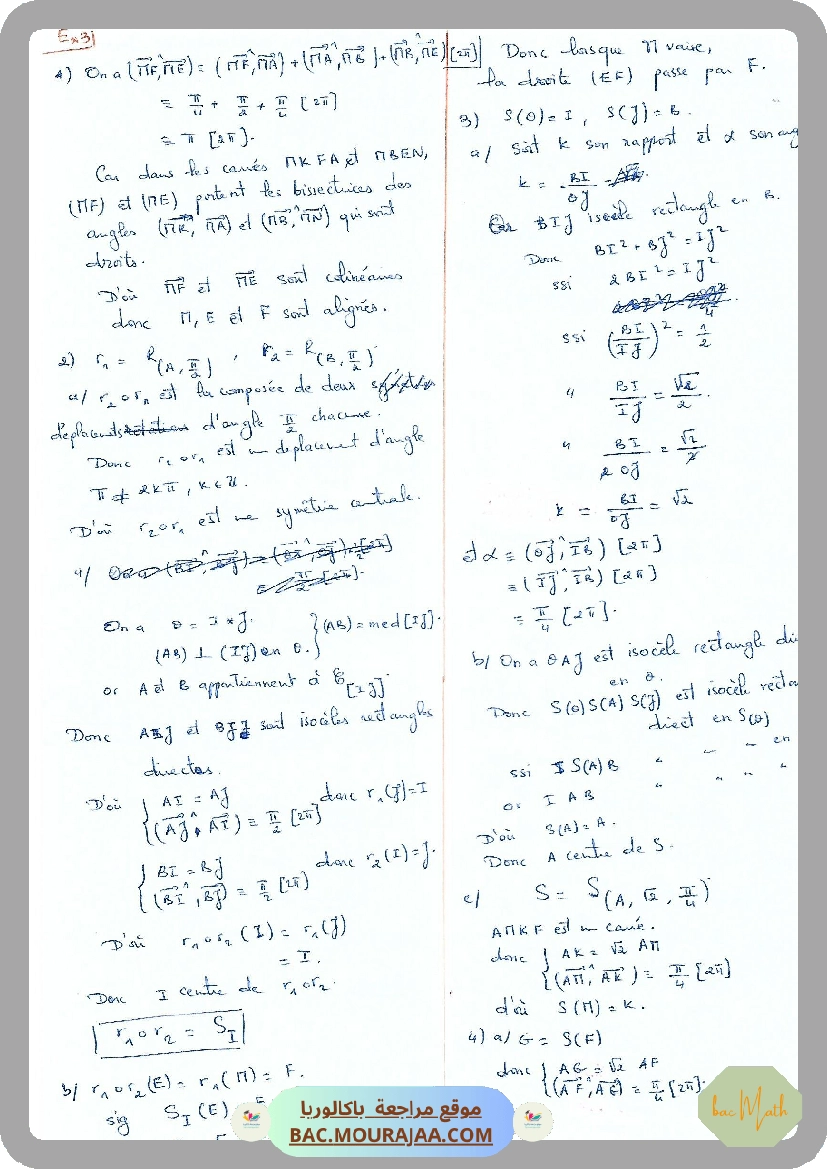 Ex 3)
1) On a (MF, ME) = (MF, MA) + (MA, MB) + (MB, ME) [2π]
≡ π/4 + π/2 + π/4 [2π]
≡ π [2π].
Car dans les carrés MKFA et MBEN,
(MF) et (ME) portent les bissectrices des
angles (MK, MA) et (MB, MN) qui sont
droits.
D'où MF et ME sont colinéaires
donc M, E et F sont alignés.
2) r₁ = R(A, π/2) , r₂ = R(B, π/2)
a/ r₂ o r₁ est la composée de deux
déplacements d'angle π/2 chacune.
Donc r₂ o r₁ est un déplacement d'angle
π ≠ 2kπ, k ∈ ℤ.
D'où r₂ o r₁ est une symétrie centrale.
On a O = I * J. } (AB) = med [IJ].
(AB) ⊥ (IJ) en O.
or A et B appartiennent à 𝒞[IJ]
Donc AIJ et BIJ sont isocèles rectangles
directes.
D'où { AI = AJ donc r₁(J) = I
(AJ, AI) ≡ π/2 [2π]
{ BI = BJ donc r₂(I) = J.
(BI, BJ) ≡ π/2 [2π]
D'où r₁ o r₂ (I) = r₁(J)
= I.
Donc I centre de r₁ o r₂.
r₁ o r₂ = S_I
b/ r₁ o r₂ (E) = r₁(M) = F.
sig S_I (E)
Donc lorsque M varie,
la droite (EF) passe par F.
3) S(O) = I , S(J) = B.
a/ Soit k son rapport et α son ang
k = BI/OJ
Or BIJ isocèle rectangle en B.
Donc BI² + BJ² = IJ²
ssi 2BI² = IJ²
ssi (BI/IJ)² = 1/2
" BI/IJ = √2/2.
" BI/2OJ = √2/2
k = BI/OJ = √2
et α ≡ (OJ, IB) [2π]
≡ (IJ, IB) [2π]
≡ π/4 [2π].
b/ On a OAJ est isocèle rectangle di
en O.
Donc S(O)S(A)S(J) est isocèle recta
direct en S(O)
ssi I S(A) B " - - en
or I A B " " " "
D'où S(A) = A.
Donc A centre de S.
c/ S = S(A, √2, π/4)
AMKF est un carré.
donc { AK = √2 AM
(AM, AK) ≡ π/4 [2π]
d'où S(M) = K.
4) a/ G = S(F)
donc { AG = √2 AF
(AF, AG) ≡ π/4 [2π].
موقع مراجعة باكالوريا
BAC.MOURAJAA.COM
bac Math